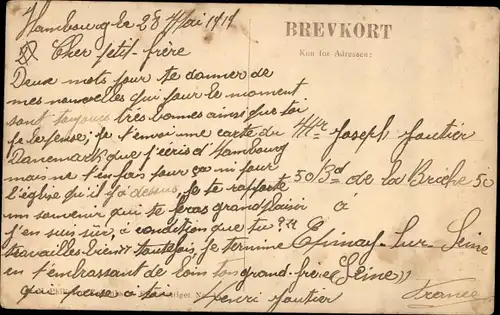 Hambourg le 28 Mai 1919
BREVKORT
Kun for Adressen:
Cher petit-frère
Deux mots pour te donner de
mes nouvelles qui pour le moment
sont toujours très bonnes ainsi que toi
je le pense; je t'envoi une carte du
Danemark que j'écris d'Hambourg
mais ne t'en fais pour ça ni pour
l'église qu'il y a dessus, je te rapporte
un souvenir qui te feras grand plaisir
j'en suis sûr, à condition que tu
travailles bien toutefois je termine
en t'embrassant de loin ton grand-frère
qui pense à toi Henri Gautier
Mr Joseph Gautier
50 Bd de la Briche 50
à
Epinay-sur-Seine
(Seine)
France